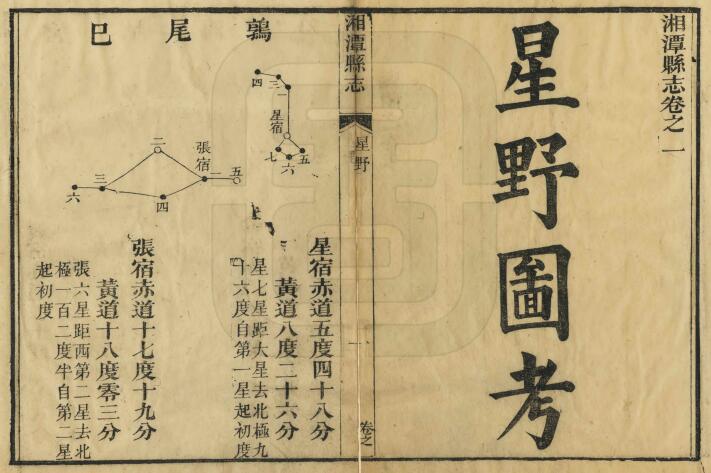 湘潭縣志卷之一
星野圖考
湘潭縣志
星野
一
卷之
鶉尾巳
四
三
一
星宿
七
六
五
二
張宿
一
五
三
四
六
星宿赤道五度四十八分
黃道八度二十六分
星七星距大星去北極九
十六度自第一星起初度
張宿赤道十七度十九分
黃道十八度零三分
張六星距西第二星去北
極一百二度半自第二星
起初度